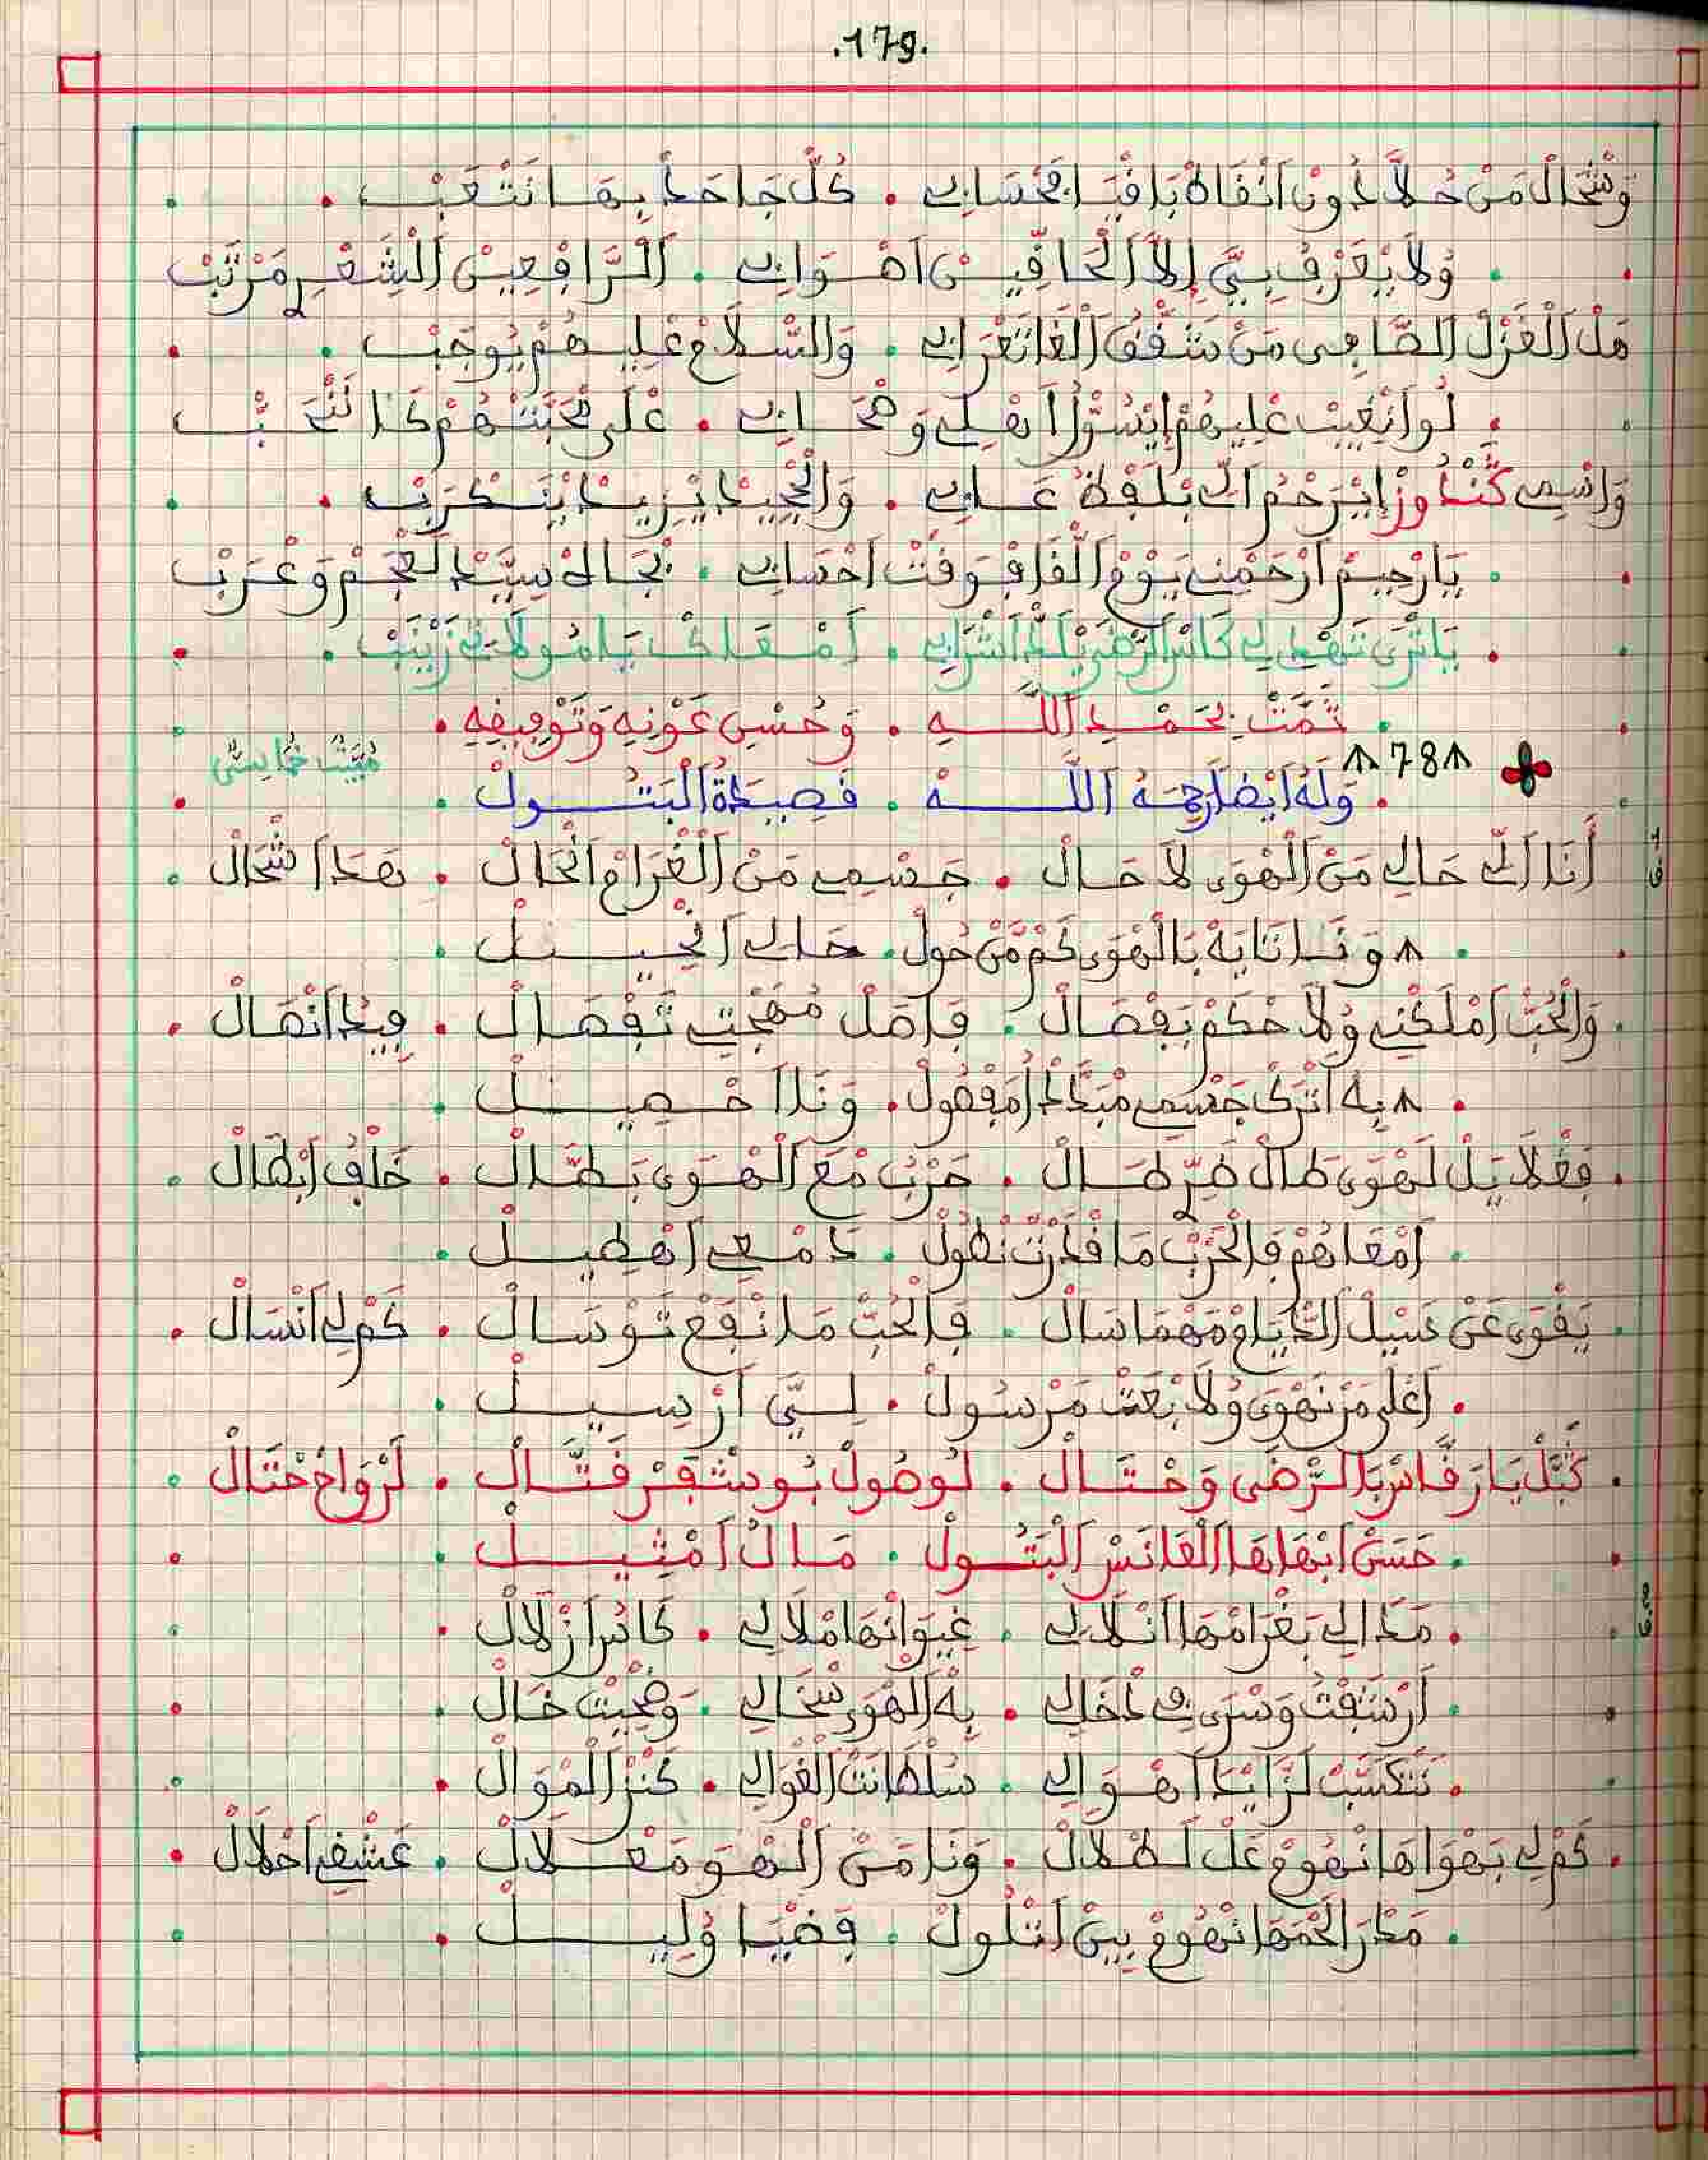 .179.
وَشْحَالْ مَنْ حُلَّا دُونْ انْقَاهْ بَاقْيَا فَحْسَابِي . كُلّ جَاحَدْ بِهَا نَتْعَبْ
وُلَا يْعَرْفْ بِيَّ إِلَّا الْحَافِيسْ اهْوَابِي . الرَّافْعِينْ الشِّعْرِ مَرْتَبْ
مَنْ الْغَزْلْ الصَّافِي مَنْ شَقّقْ الْغَا تَعْرَابِي . وَالسْلَامْ عْلِيهُمْ يُوجَبْ
لُو انْغِيبْ عْلِيهُمْ إِيْسُولُ اهْلِي وَصْحَابِي . عْلَى مْحَبَّتْهُمْ كَذَا نَنْحَبّْ
وَاسْمِي كَنْدُوزْ إِيْرَحْمُ الِّي بْلَفْظُ عَابِي . وَالْجِيدْ يْزِيدْ يْنَسْكْرَبْ
يَا رْحِيمْ ارْحَمْنِي يَوْمْ الْقَا فَوْقَتْ احْسَابِي . بْجَاهْ سِيدْ الْعْجَمْ وَعْرَبْ
يَا تْرَى تَهْدِي لِي كَاسْ الرّْضَى يَلَدّْ اشْرَابِي . امْعَاكْ يَا مُولَاتِي زَيْنَبْ
تَمَّتْ بِحَمْدِ اللَّهِ . وَحُسْنِ عَوْنِهِ وَتَوْفِيقِهِ
مْبَيَّتْ خُمَاسِي
78
وَلَهُ أَيْضًا رَحِمَهُ اللَّهْ . قَصِيدَةُ الْبَتُولْ
أَنَا الِّي حَالِي مَنْ الْهْوَى لَا حَالْ . جَسْمِي مَنْ الْغْرَامْ انْحَالْ . هَدَا شْحَالْ
وَنَا نَابَهْ بَالْهْوَى كَمْ مَنْ حُولْ . حَالِي انْحِيلْ
وَالْحُبّْ امْلَكْنِي وُلَا حْكَمْ بَفْصَالْ . فَاصَلْ مُهْجْتِي تَفْصَالْ . فِيدْ انْصَالْ
بِهْ اتْرَكْ جَسْمِي مْبَدَّدْ امَفْصُولْ . وَنَا اخْصِيلْ
فَعْلَايَلْ لَهْوَى طَالْ ضَرّْ طَالْ . حَرْبُ مْعَ الْهْوَى بَطَّالْ . خَلْفْ ابْطَالْ
امْعَاهُمْ فَالْحَرْبْ مَا قْدَرْتْ نْطُولْ . دَمْعِي اهْطِيلْ
يَقْوَى عَنْ سَيْلْ الدَّيَامْ مَهْمَا سَالْ . فَالْحُبّْ مَا نْفَعْ تَوْسَالْ . كَمْ لِي انْسَالْ
اعْلَى مَنْ نَهْوَى وُلَا بْعَتْ مَرْسُولْ . لِيَّ ارْسِيلْ
كَبَّلْ يَا رَفَّاسْ بَالرّْضَى وَحْتَالْ . لُوصُولْ بُو شْفَرْ قَتَّالْ . لَرْوَاحْ حْتَالْ
حَسْنْ ابْهَاهَا الْعَانَسْ الْبَتُولْ . مَالُ امْثِيلْ
مَدَالِي بَغْرَامْهَا انْلَالِي . غِيوَانْهَا مْلَالِي . كَاسْ ازْلَالْ
ارْشَفْتُ وَسْرَى فِي دْخَالِي . بِهْ الْهْوَى سْخَالِي . وَضْحِيتْ خَالْ
نَتْكَسَّبْ لَزَّايْدْ اهْوَالِي . سُلْطَانْتْ الْغْوَالِي . كَنْزْ الْمْوَالْ
كَمْ لِي بَهْوَاهَا نْهُومْ عَلْ لَطْلَالْ . وَنَا مَنْ الْهْوَ مَعْلَالْ . عَشْقِي احْلَالْ
مَدْرَى الْحُمْهَا نْهُومْ بِينْ اتْلُولْ . فَضْيَا وُلِيلْ